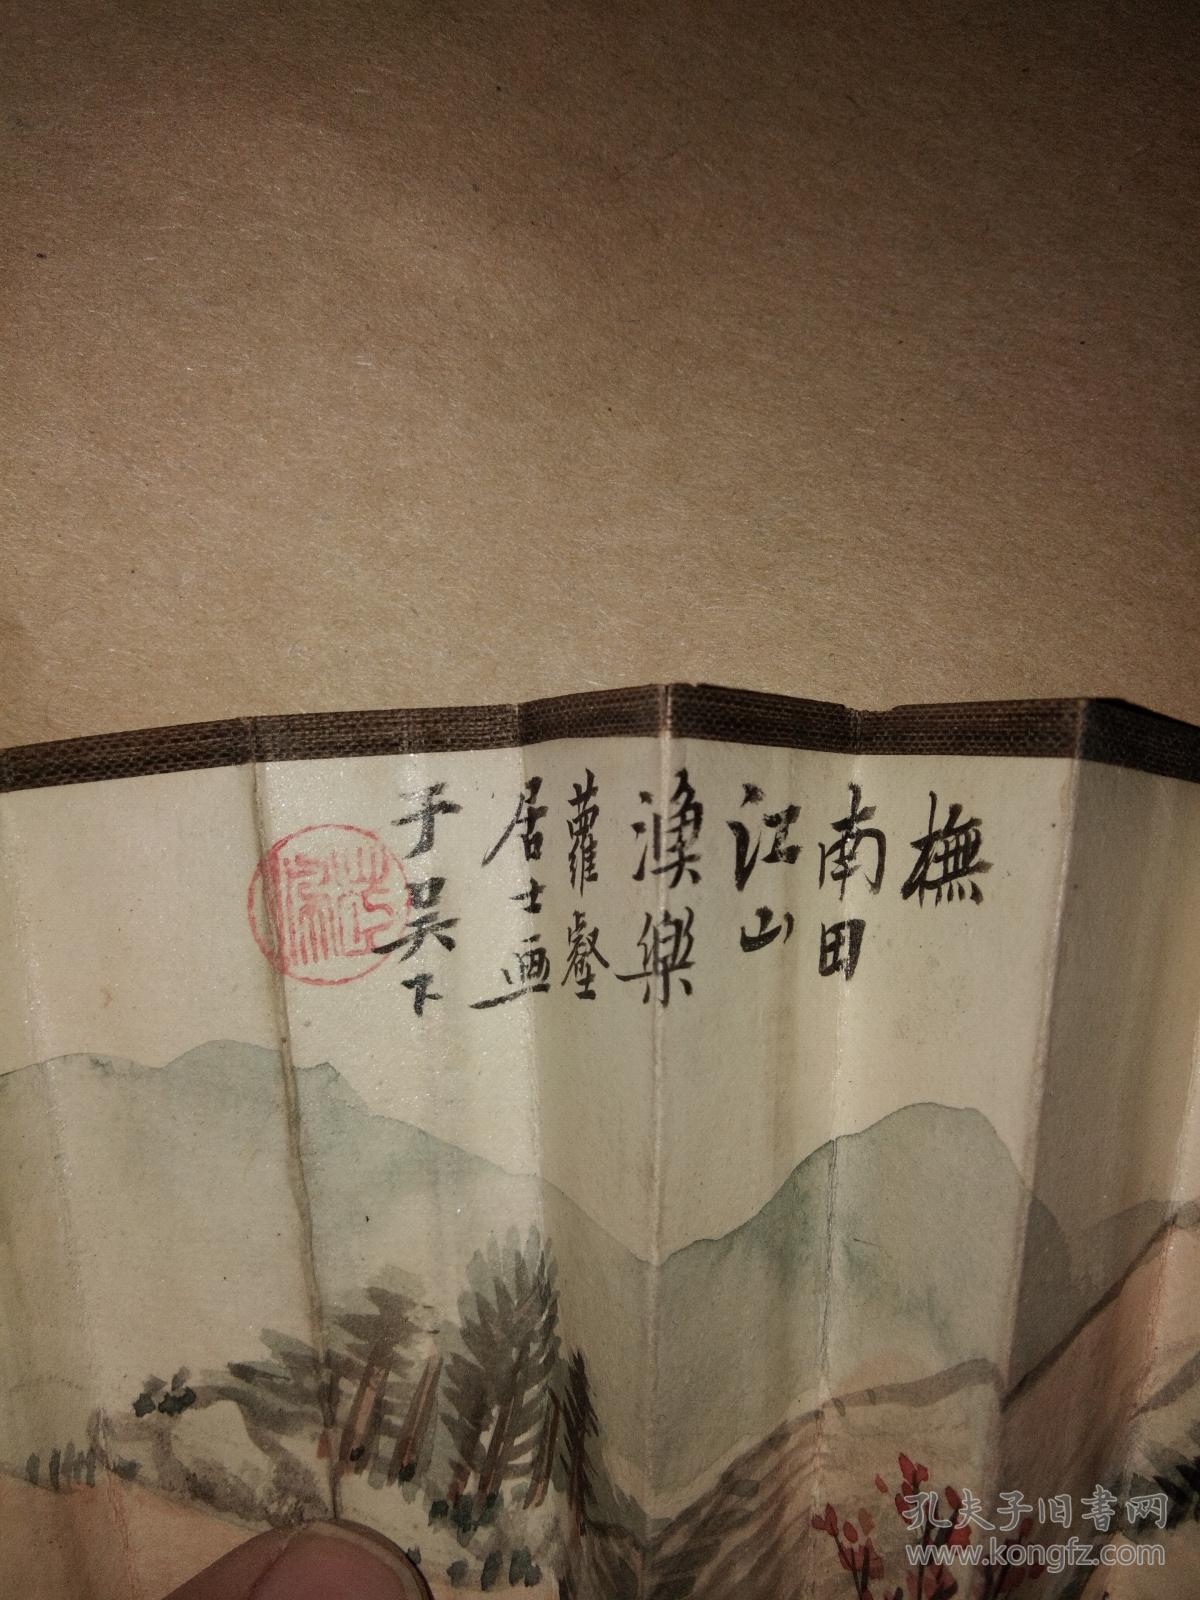 橅
南田
江山
渔樂
蘿壑
居士画
于吴下
孔夫子旧書网
www.kongfz.com